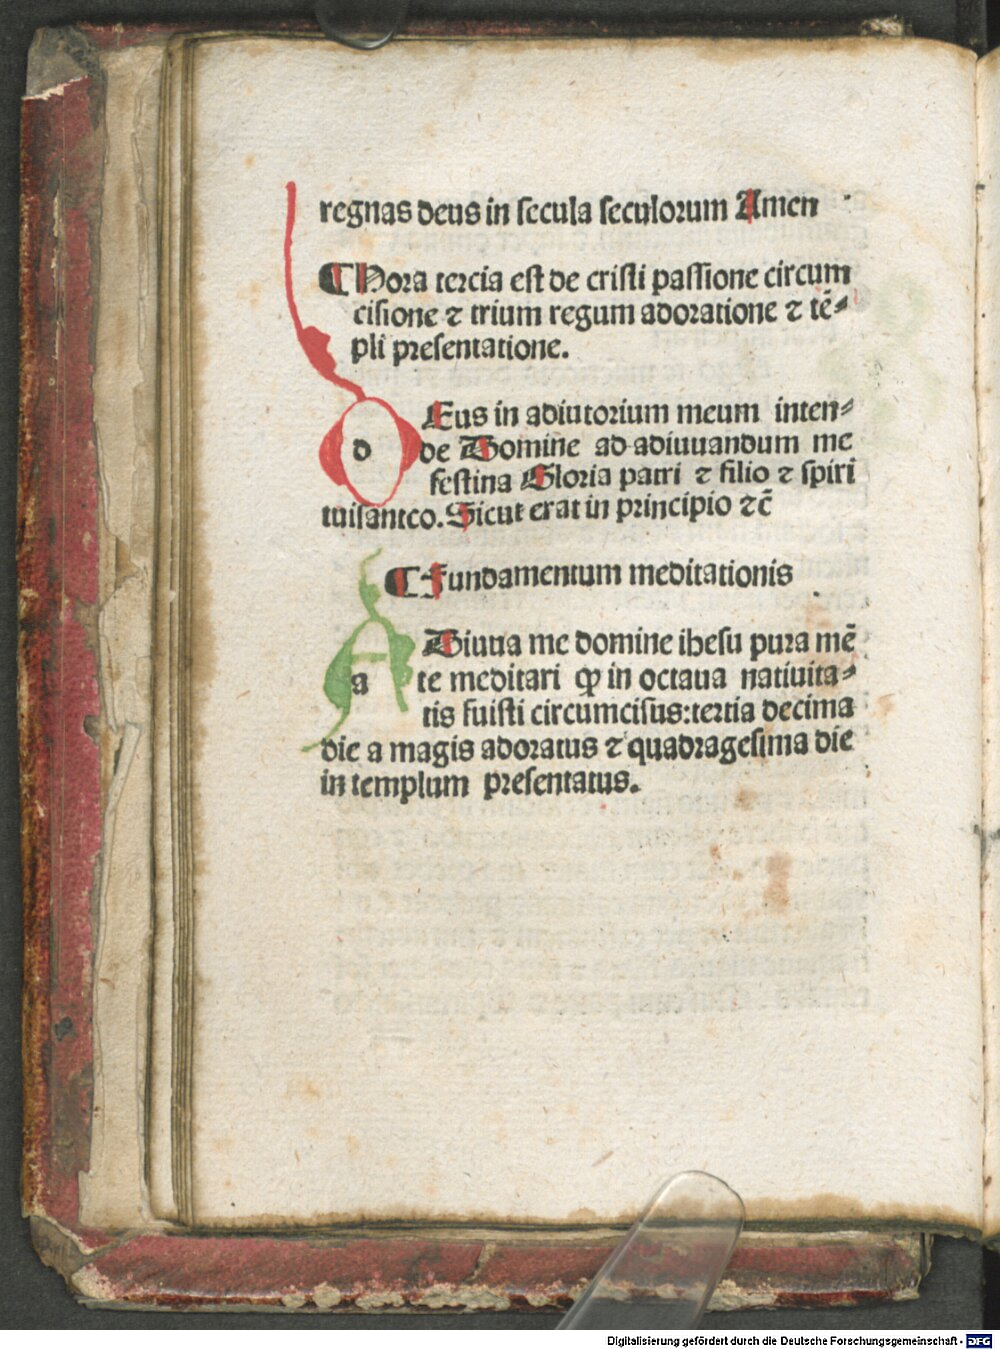 regnas deus in secula seculorum Amen
¶ Hora tercia est de cristi passione circum
cisione ⁊ trium regum adoratione ⁊ tē⸗
pli presentatione.
d Eus in adiutorium meum inten⸗
de Domine ad adiuuandum me
festina Gloria patri ⁊ filio ⁊ spiri
tuisancto. Sicut erat in principio ⁊c̄
¶ Fundamentum meditationis
a Diuua me domine ihesu pura mē
te meditari ꝙ in octaua natiuita⸗
tis fuisti circumcisus: tertia decima
die a magis adoratus ⁊ quadragesima die
in templum presentatus.
Digitalisierung gefördert durch die Deutsche Forschungsgemeinschaft - DFG